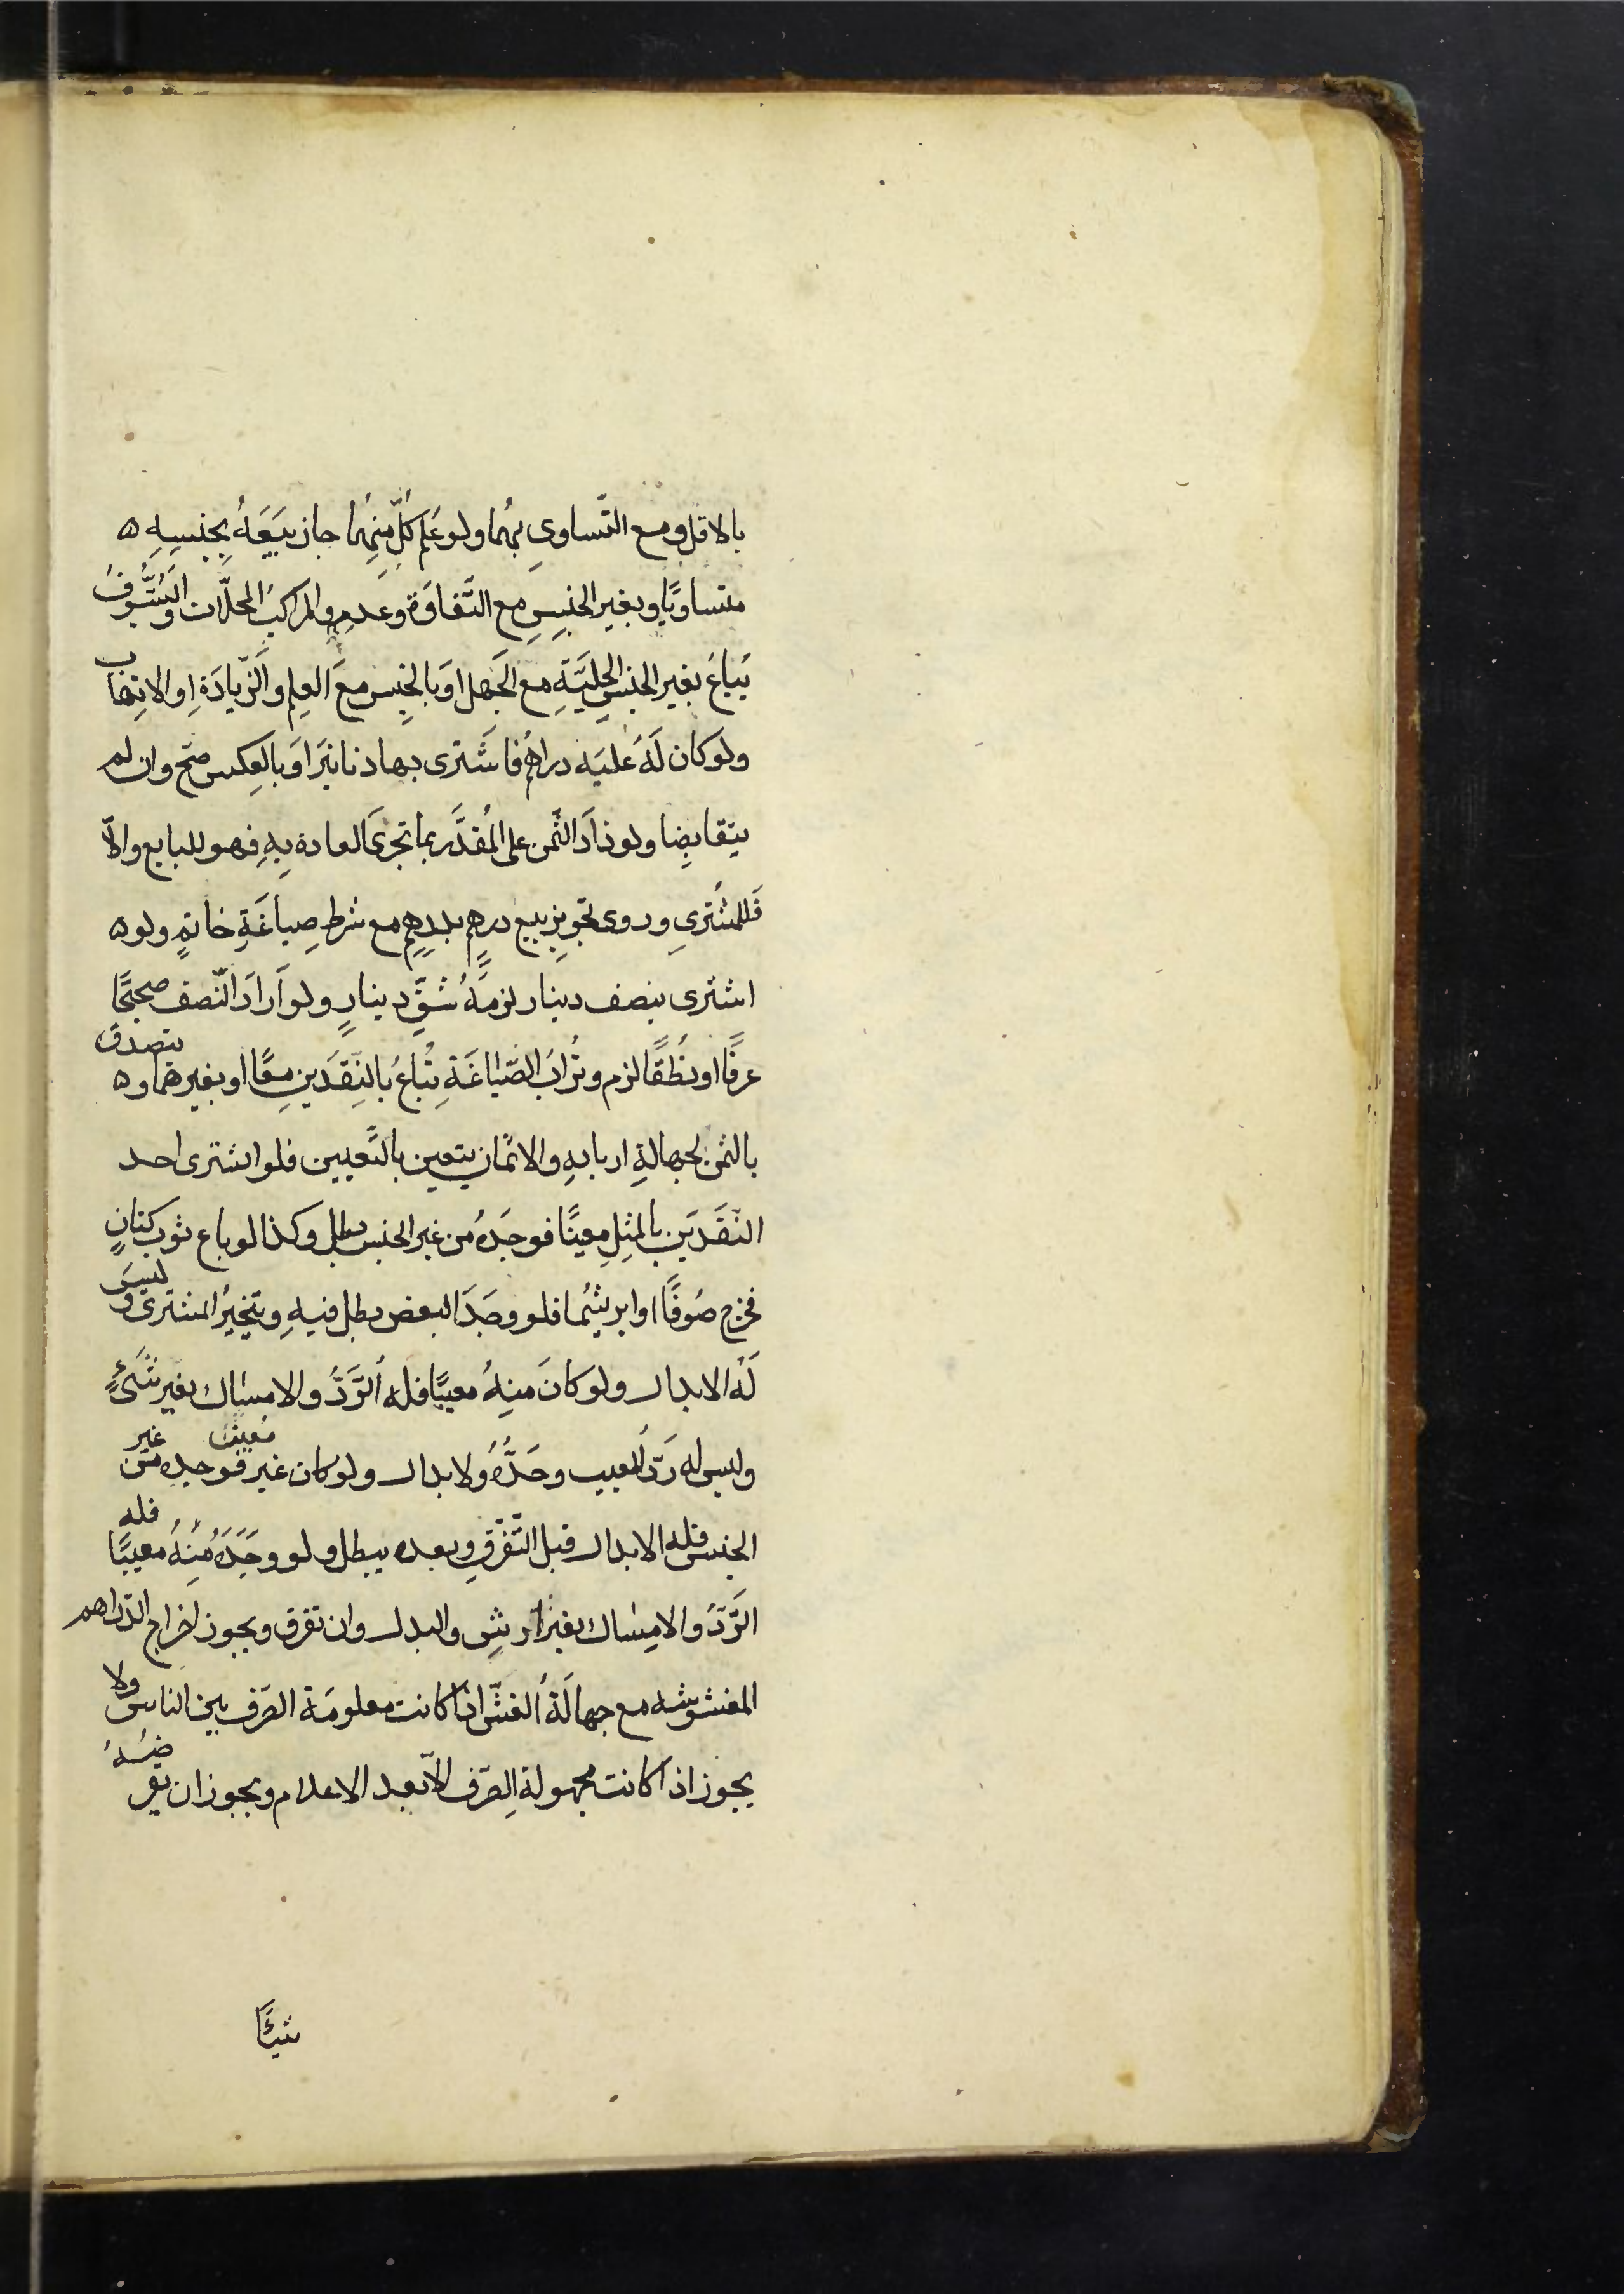 بالاقل ومع التّساوىِ بهُما ولو عَلِم كلُّ منِهُما جاز بَيَعَهُ بِجنِسِهِ ه
متساويًا وبغير الجنِسِ مع التَّفاوَة وعَدمِهِ والمراكبُ المحلّات والسُّيُوفُ
يُباعُ بغير الجنسِ الحِليَّةِ مع الجَهل اوَ بالجنِسِ معَ العِلمِ والزّيادَةِ اوِ الاتِهاب
ولوَ كان لَهُ عليَه دراهُم فاشَترى بها دنانيَرا اوَ بالعِكس صَحّ وان لم
يتقابضِا ولو زادَ الثَّمن على المُقدَّر بما تجرىَ العادة بهِ فهو للبايع والاّ
فَلِلمشُترىِ وروى تجويزِ بيع درهمٍ بدرِهمٍ مع شرط صِياغَةِ خاتمٍ ولو ه
اشترى بنصف دينار لزمَهُ شقَّ دينارٍ ولو اَرادَ النّصف صحيحًا
عرفًا او نُطقًا لزم وتُرابُ الصّياغَةِ تُباعُ بالنِقَدَينِ مِعًا او بغيرهما و ه يتصدق
بالثمن لجهالةِ اربابهِ والاثمان يتعين بالتَّعيين فلو اشترى احد
النّقَدَيَن بالمثِلِ معِينًا فوجَدهُ من غير الجنس بطل وكذا لو باع ثوب كتانٍ
فخرج صُوفًا او ابريشُما فلو وجَدَ البعض بطل فيهِ ويتخيرُ المشترى وليسَ
لَهُ الابدال ولو كانَ منِهُ معيبًا فله الرَّدُّ والامساك بغير شَىءٍ
وليس له رَدّ المعيب وحَدَّهُ ولا بدال ولو كان غير مُعين فوجده من غير
الجنس فله الابدال قبل التّفَرّقِ وبعده يبطل ولو وجَدَهُ مِنهُ معيبًا فله
الرّدُّ والامِساك بغير ارشِ والبدل وان تفرق ويجوز اخراج الدّراهم
المغشوشه مع جهالَةُ الغشّ اذا كانت معلومَة الصَرف بين الناس ولا
يجوز اذا كانت مجهولة الِصَرف الاّ بعد الاعلام ويجوز ان يقرضهُ
شيئًا